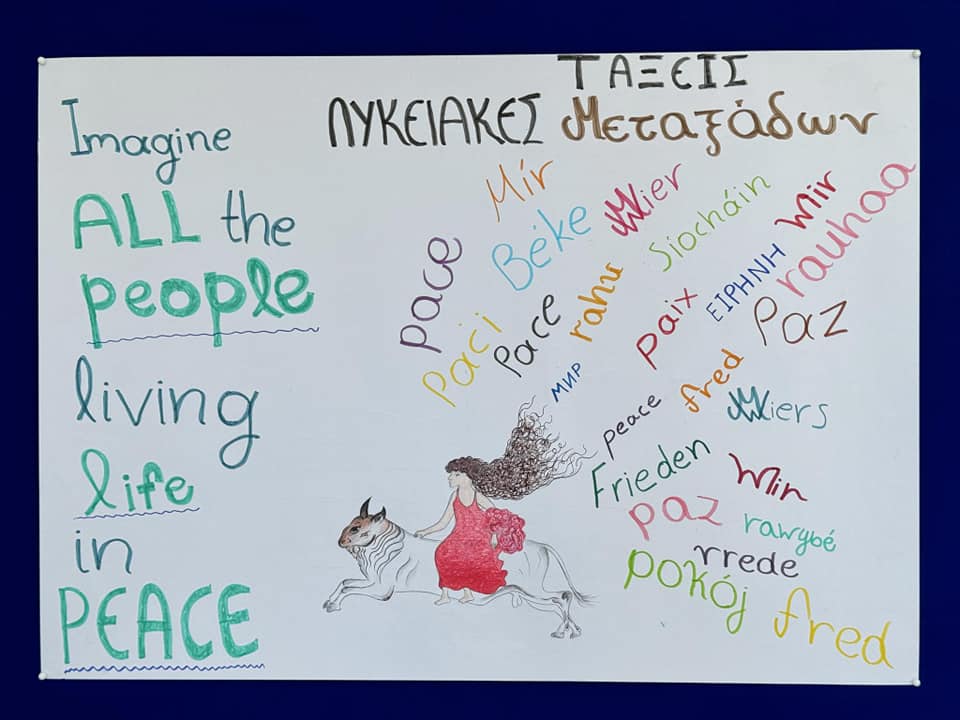 ΤΑΞΕΙΣ
ΛΥΚΕΙΑΚΕΣ Μεταξάδων
Imagine
ALL the
people
living
life
in
PEACE
Mír
pace
Béke
Wier
Síocháin
Mir
rauhaa
Paci
Pace
rahu
paix
ΕΙΡΗΝΗ
Paz
мир
peace
fred
Miers
Frieden
Mir
paz
rawybé
vrede
pokój
fred